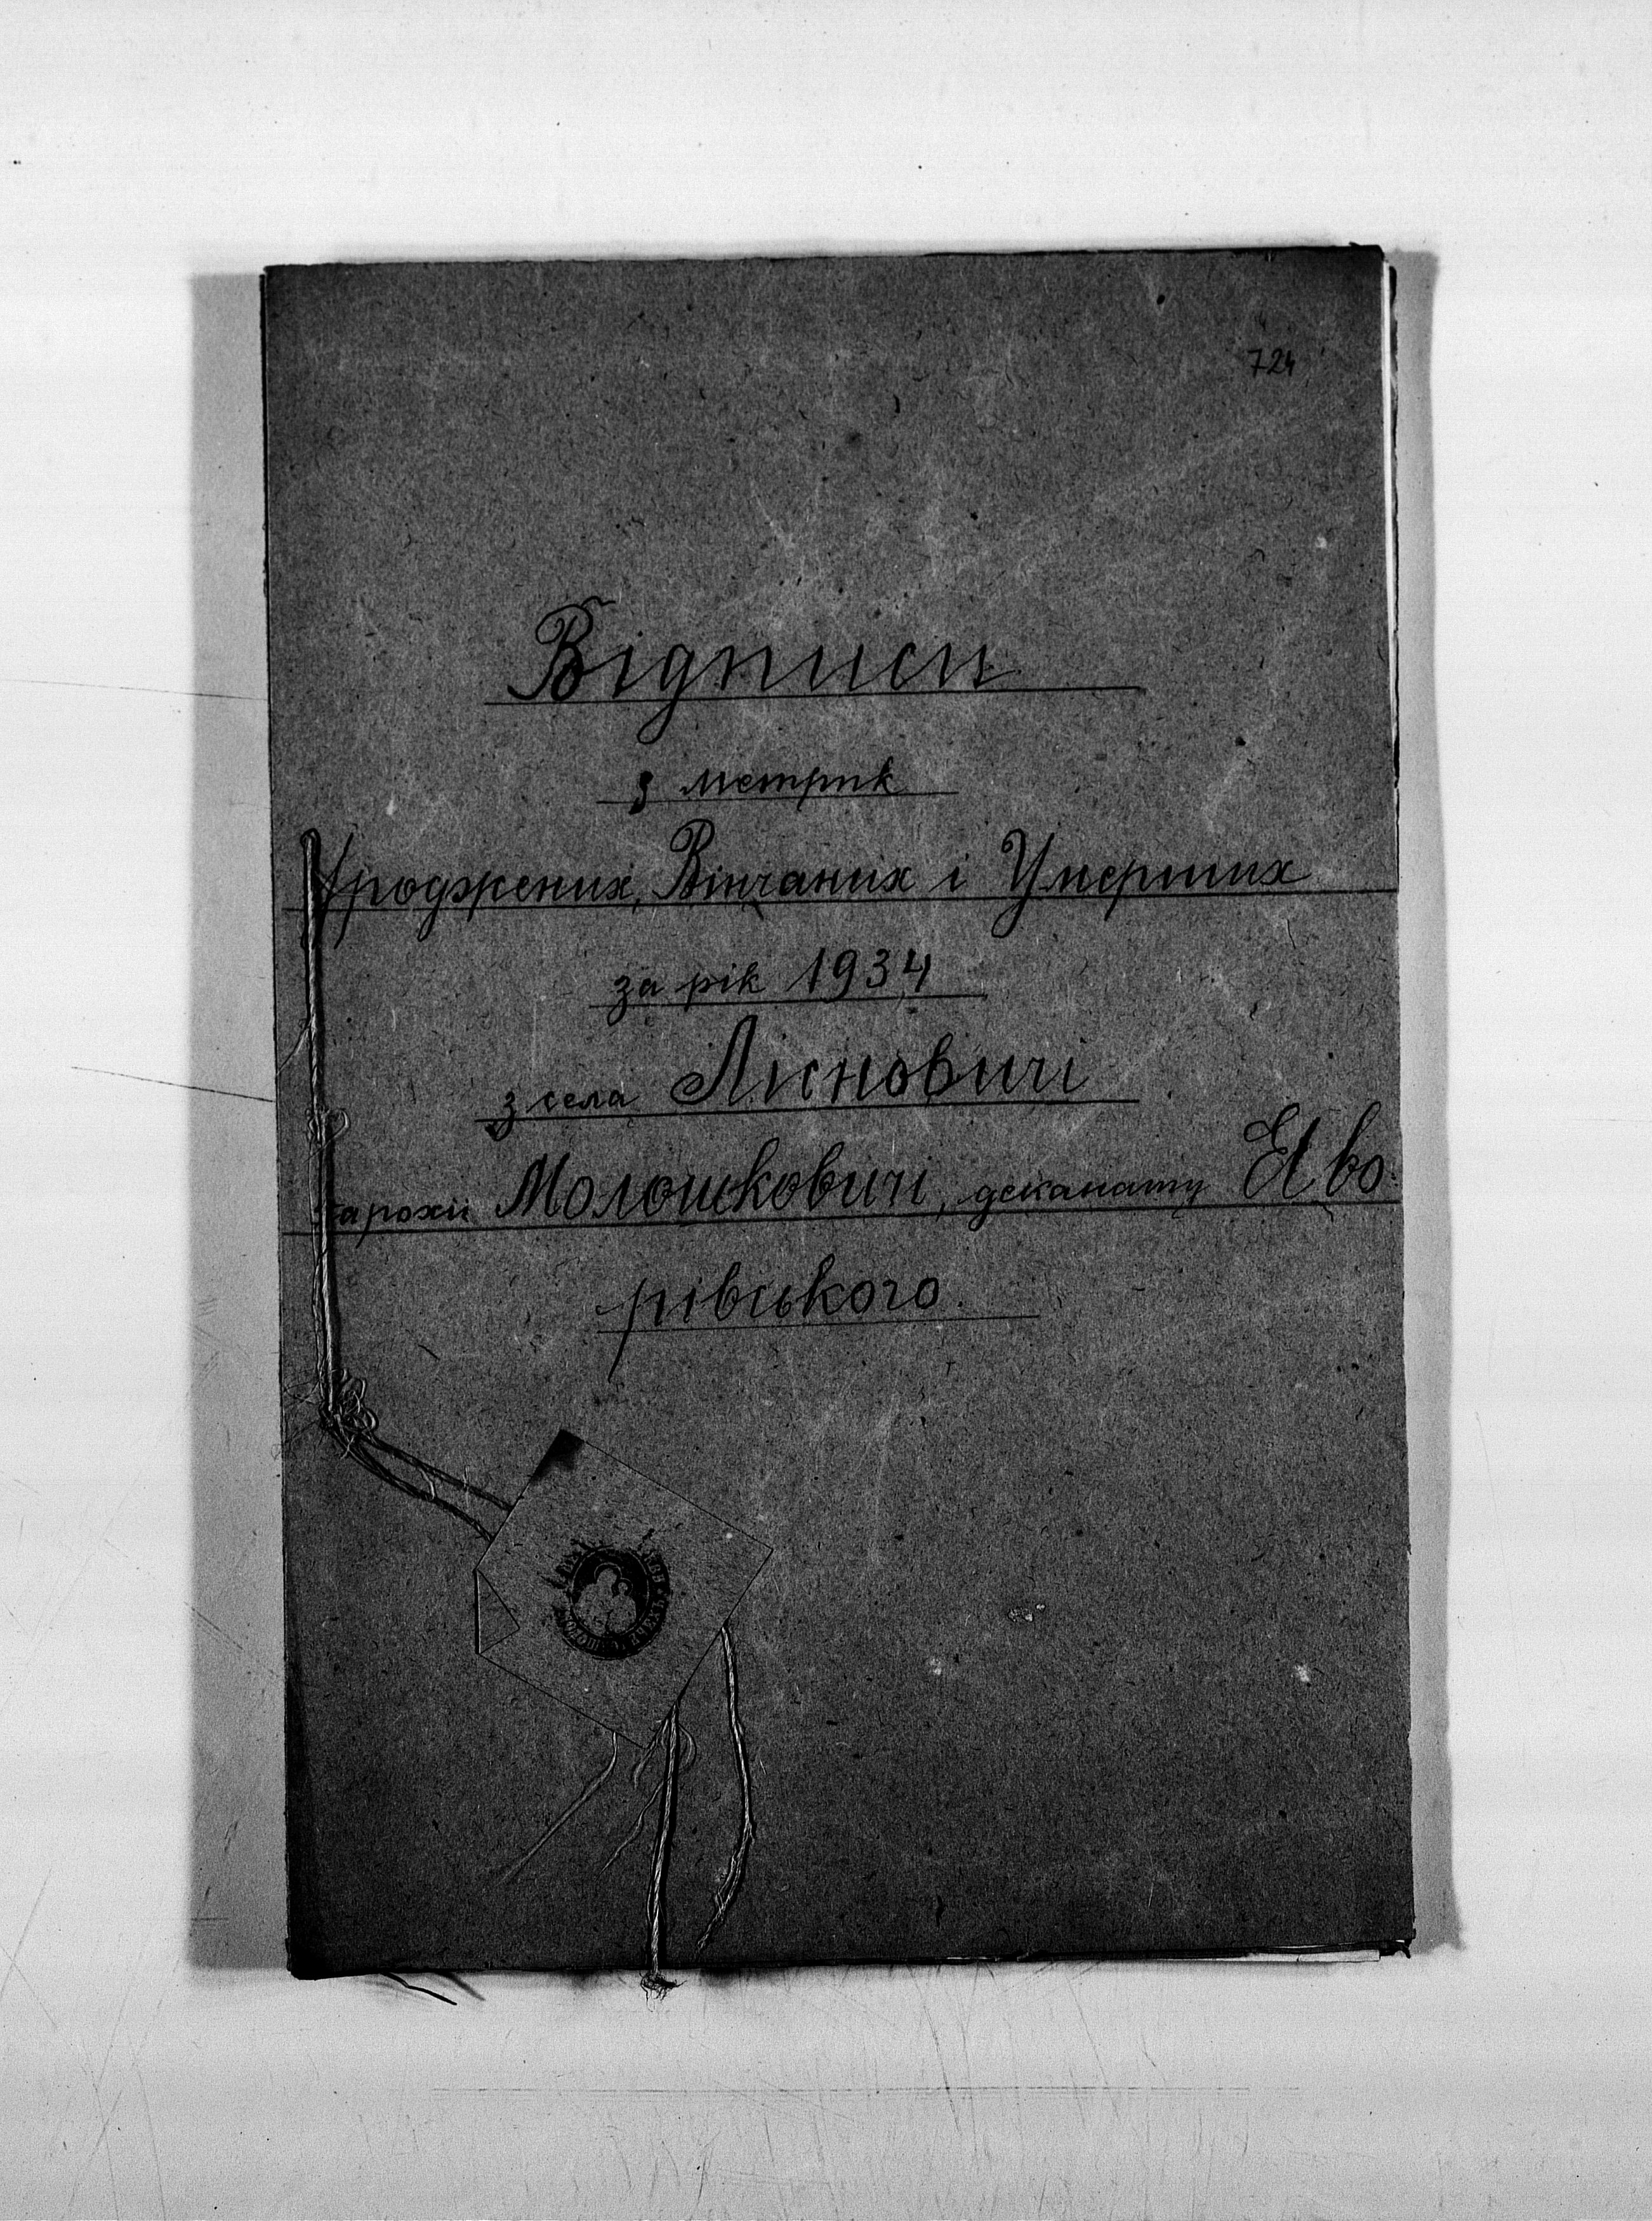 724
Відписи
з метрик
Уроджених, Вінчаних і Умерших
за рік 1934
з села Лісновичі
парохії Молошковичі, деканату Яво-
рівського.